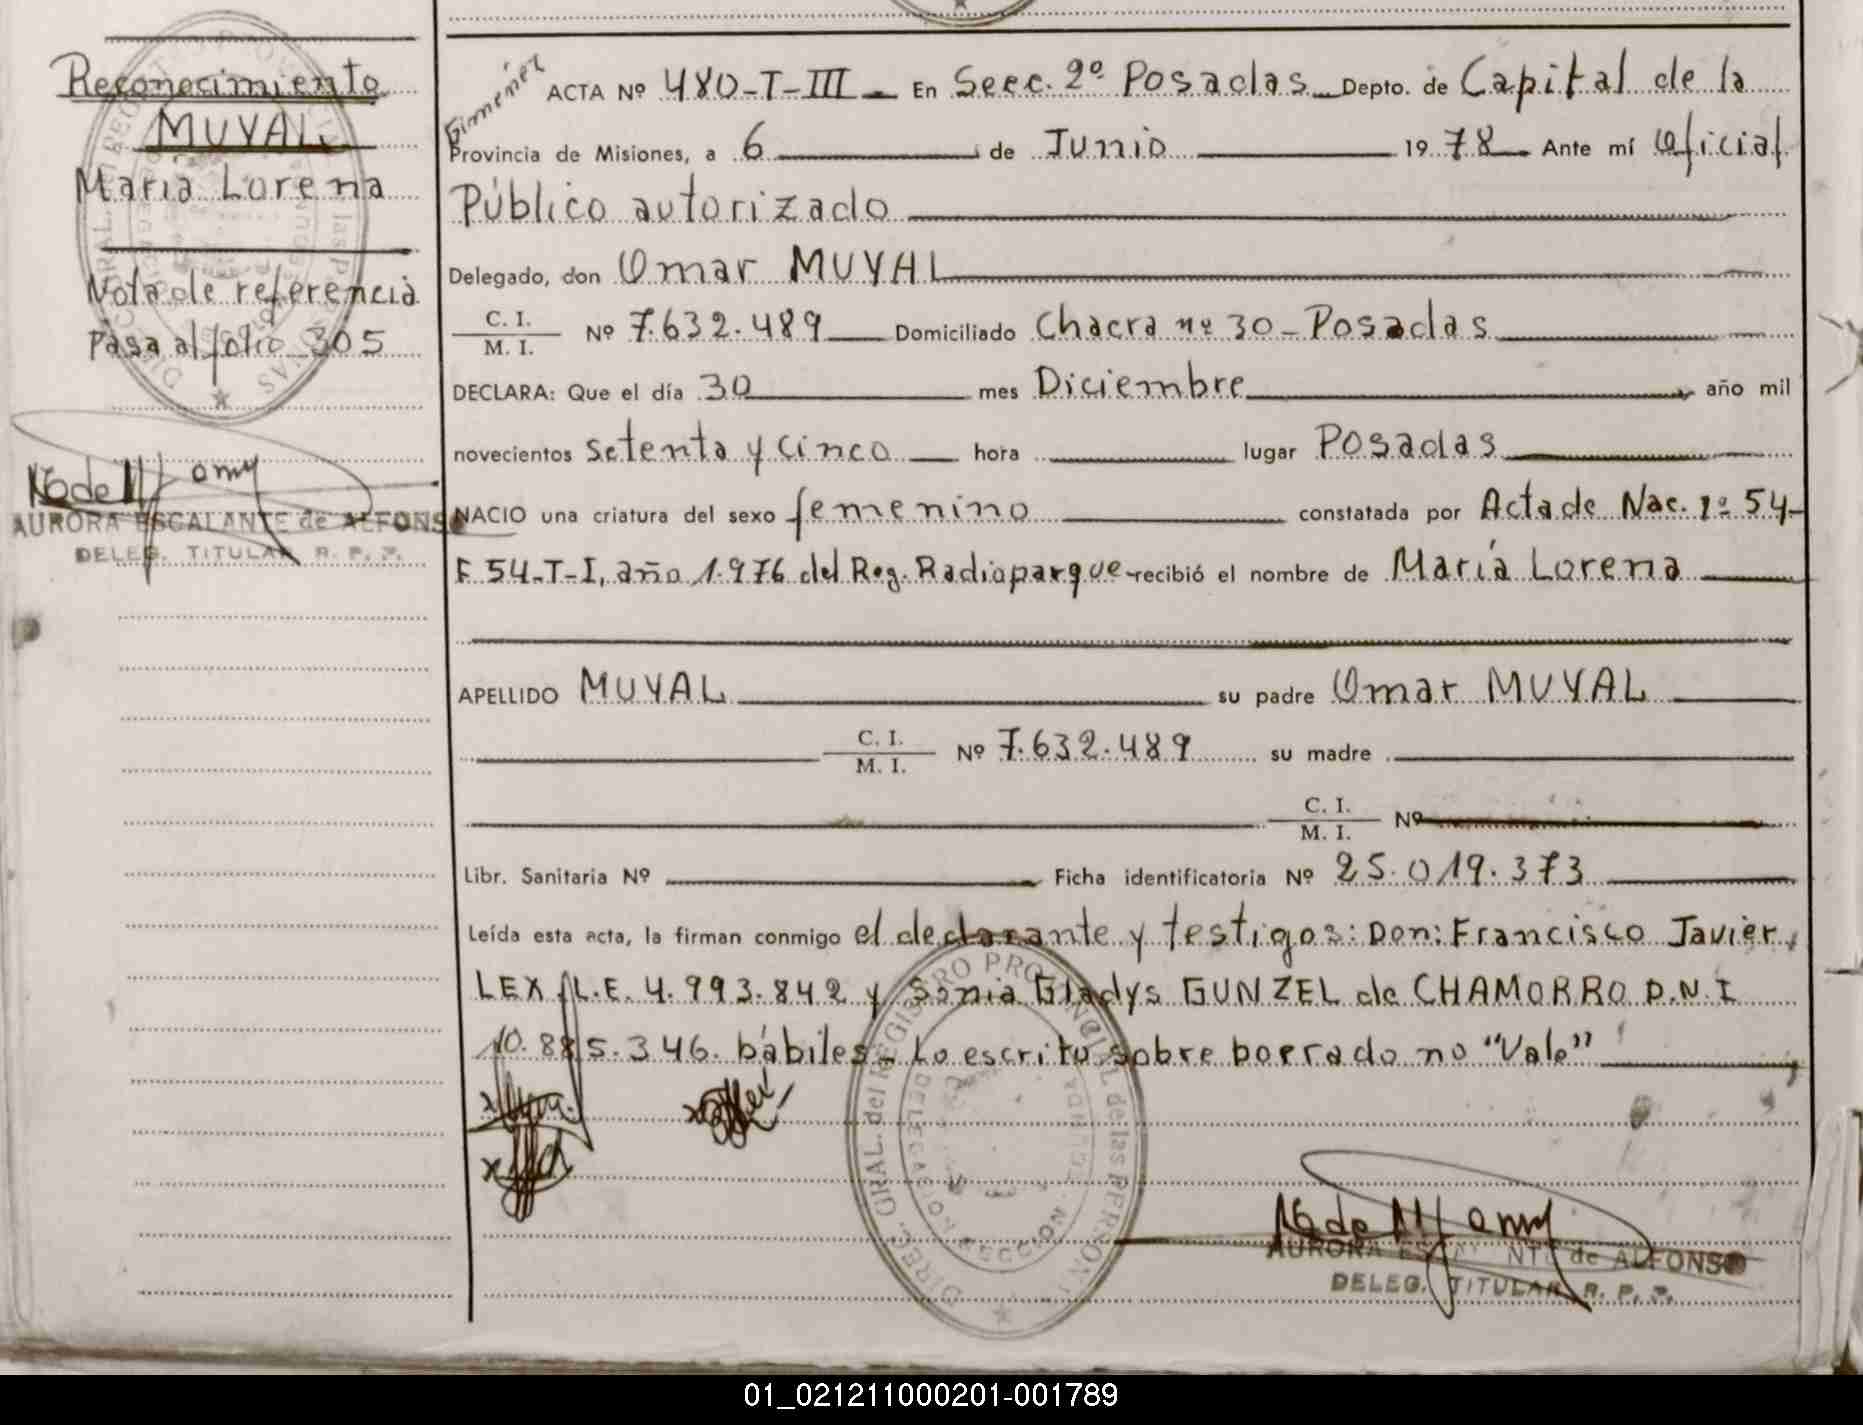 Reconocimiento
MUYAL
María Lorena
Nota de referencia
Pasa al folio 305
AURORA ESCALANTE de ALFONSO
DELEG. TITULAR R. P. P.
Gimenez
ACTA Nº 480-T-III En Secc. 2º Posadas Depto. de Capital de la
Provincia de Misiones, a 6 de Junio 1978 Ante mí Oficial
Público autorizado
Delegado, don Omar MUYAL
C. I.
M. I. Nº 7.632.489 Domiciliado Chacra nº 30-Posadas
DECLARA: Que el día 30 mes Diciembre año mil
novecientos setenta y cinco hora lugar Posadas
NACIO una criatura del sexo femenino constatada por Acta de Nac. nº 54-
F 54-T-I, año 1.976 del Reg. Radioparque-recibió el nombre de María Lorena
APELLIDO MUYAL su padre Omar MUYAL
C. I.
M. I. Nº 7.632.489 su madre
C. I.
M. I. Nº
Libr. Sanitaria Nº Ficha identificatoria Nº 25.019.373
Leída esta acta, la firman conmigo el declarante y testigos: Don: Francisco Javier
LEX L.E. 4.993.842 y Sonia Gladys GUNZEL de CHAMORRO D.N.I
10.885.346. hábiles. Lo escrito sobre borrado no "Vale"
DIREC. GRAL. del REGISTRO PROVINCIAL de las PERSONAS
DELEGACION SECCION SEGUNDA
AURORA ESCALANTE de ALFONSO
DELEG. TITULAR R. P. P.
01_021211000201-001789